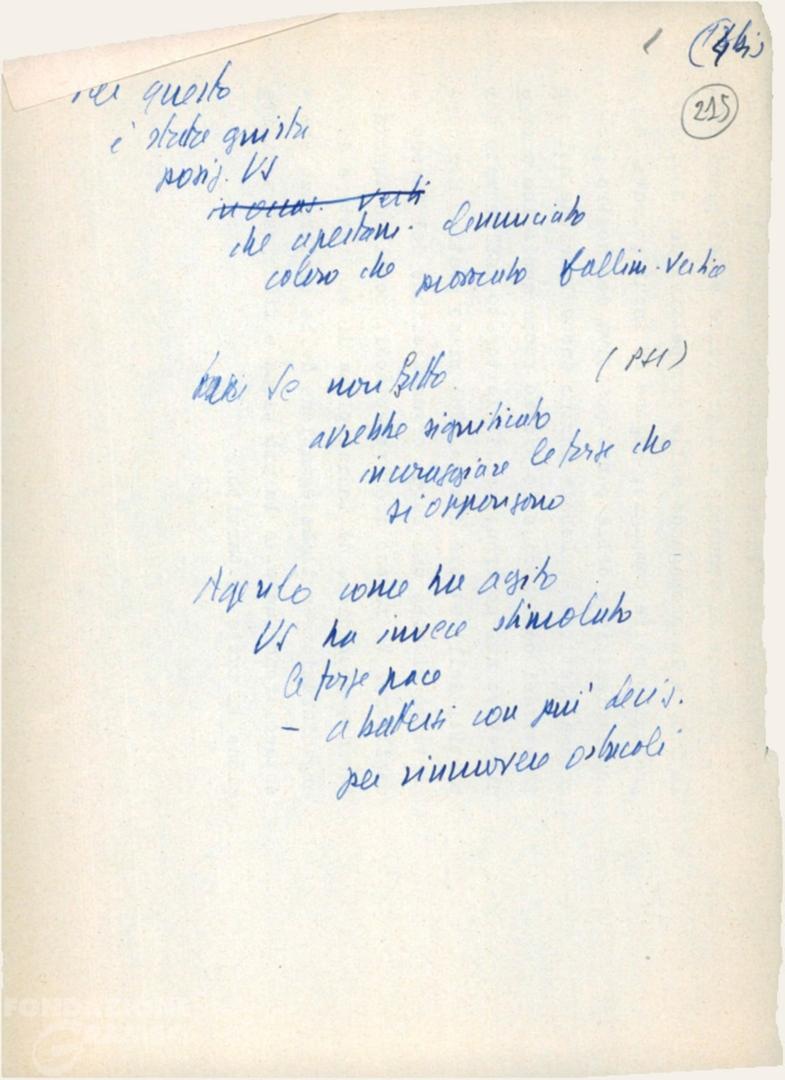 (14 bis)
215
Per questo
è stata giusta
posiz. US
in occas. verti
che apertam. denunciato
coloro che provocato fallim. vertice
Se non detto (PSI)
avrebbe significato
incoraggiare le forze che
si oppongono
Agendo come ha agito
US ha invece stimolato
le forze pace
– a battersi con più decis.
per rimuovere ostacoli
FONDAZIONE
GRAMSCI